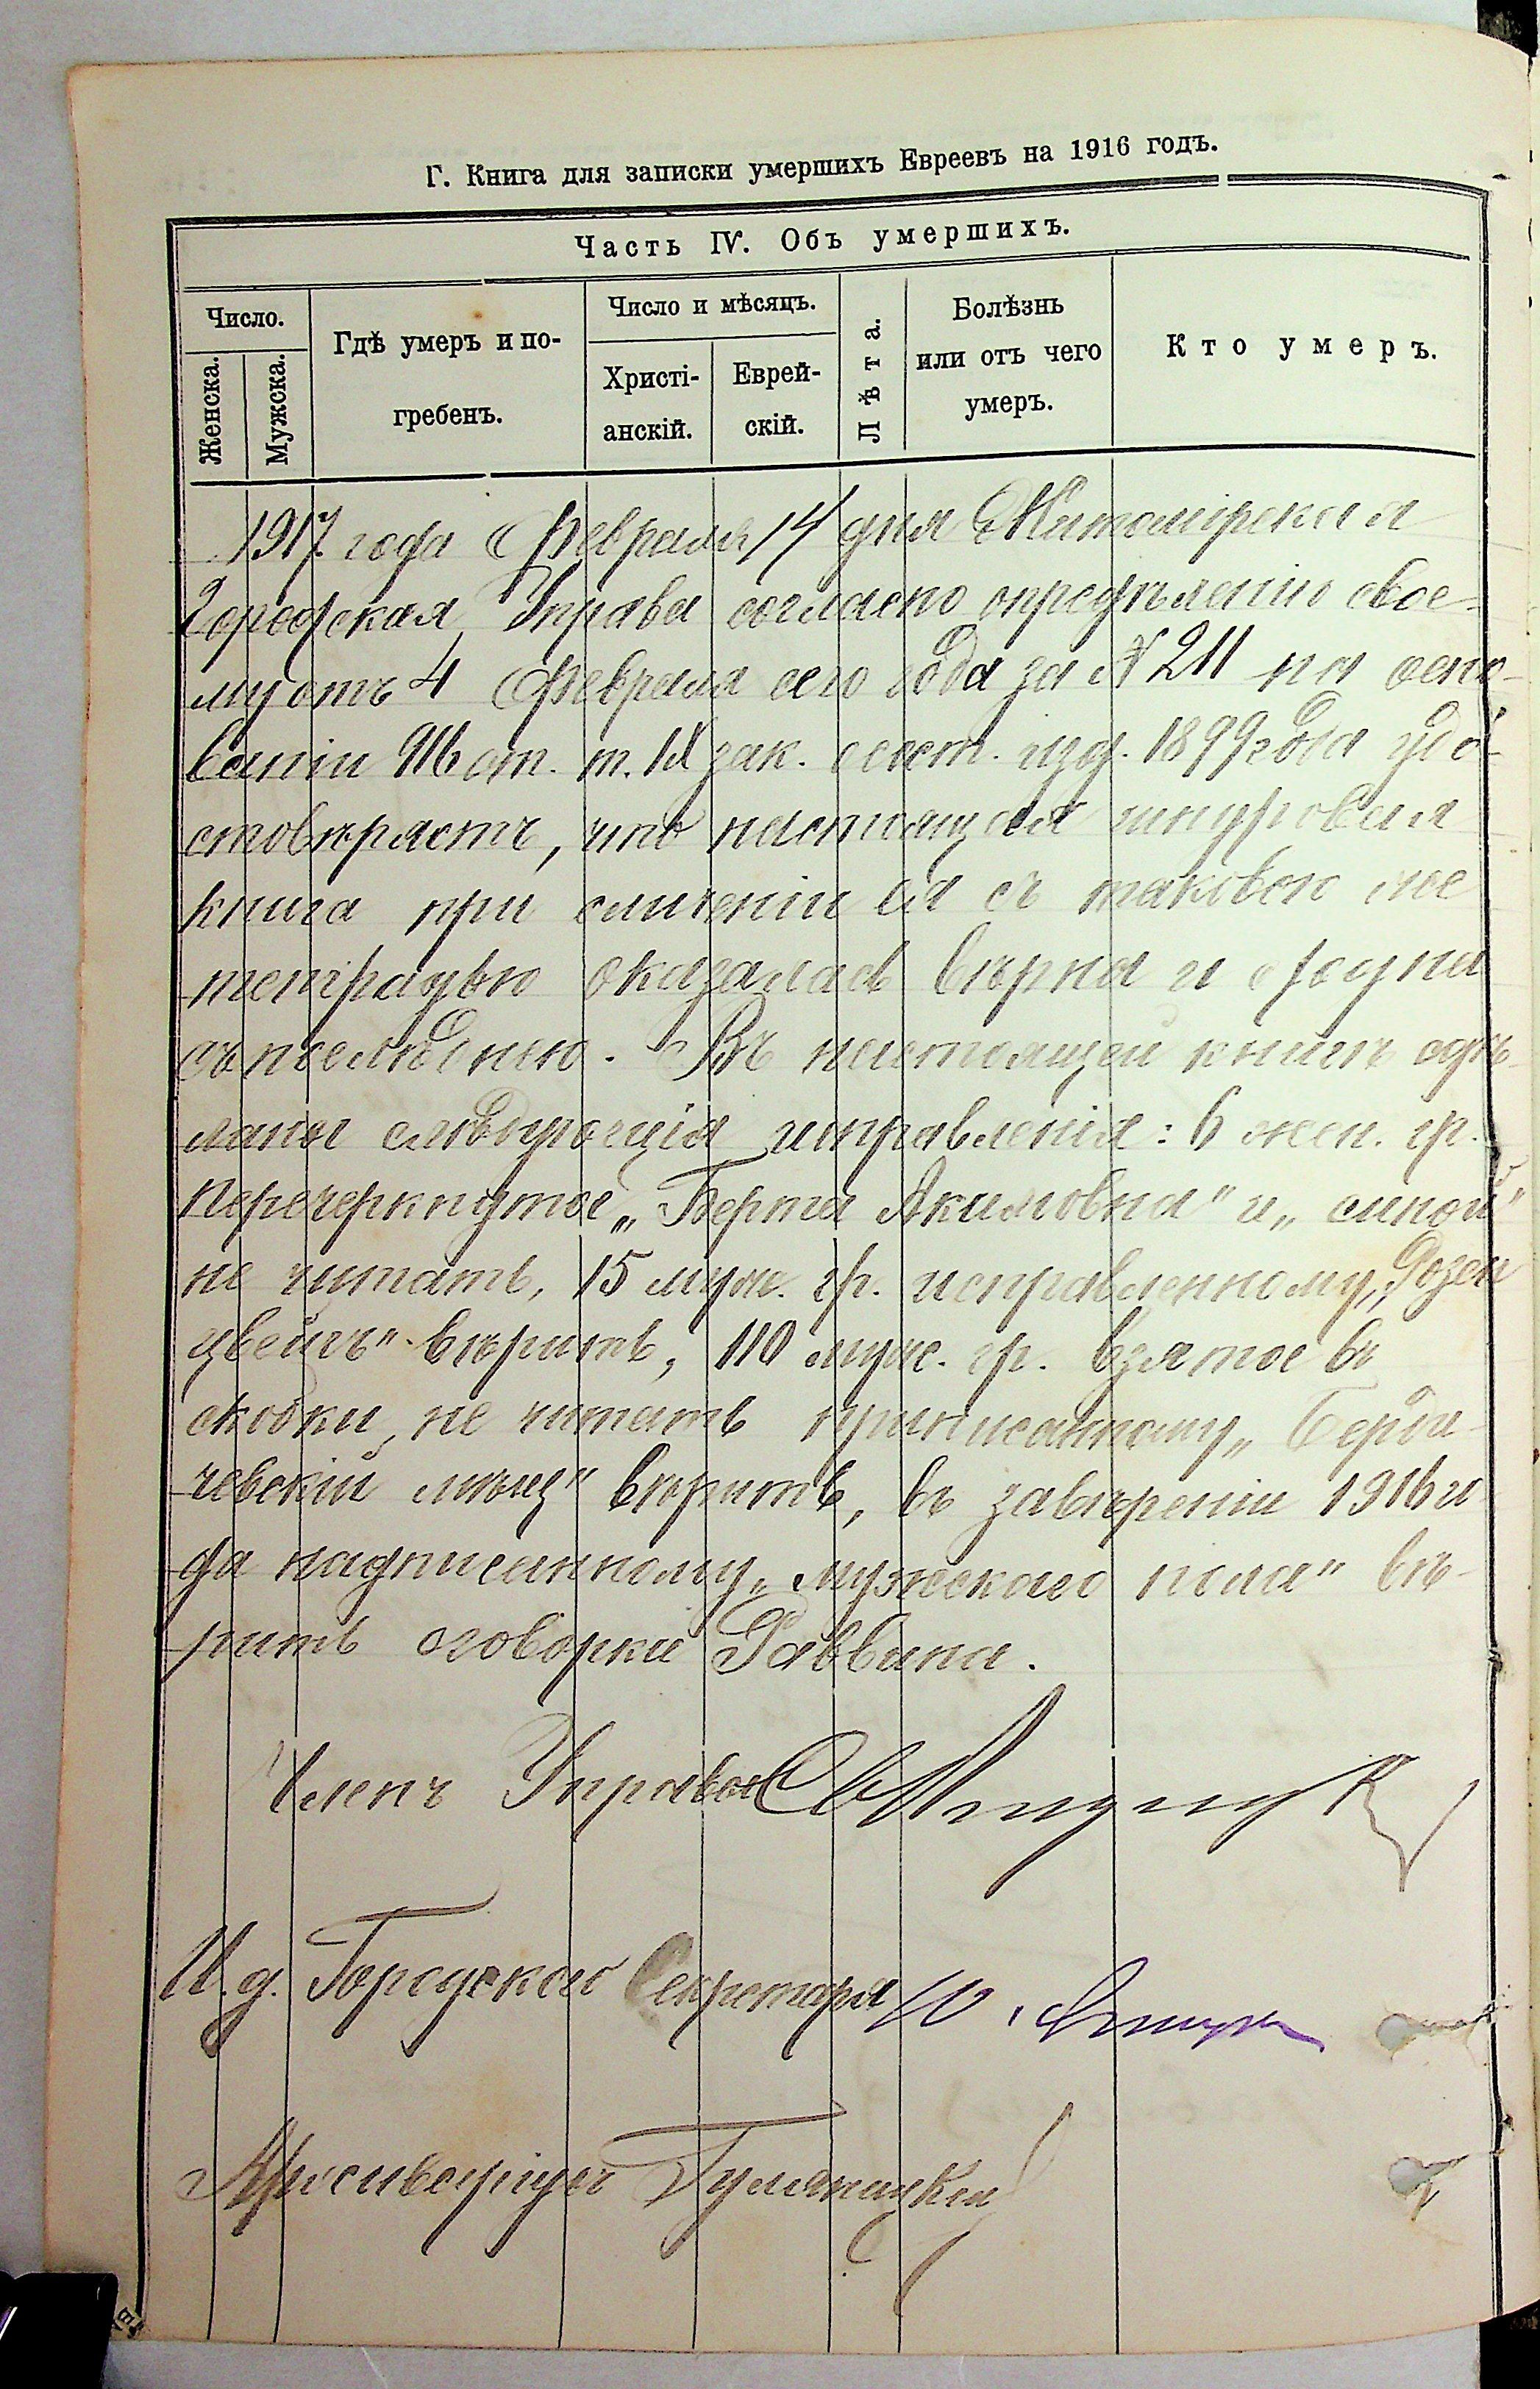 Г. Книга для записки умершихъ Евреевъ на 1916 годъ.
Часть IV. Объ умершихъ.
Число.
Женска.
Мужска.
Гдѣ умеръ и по-
гребенъ.
Число и мѣсяцъ.
Христі-
анскій.
Еврей-
скій.
Лѣта.
Болѣзнь
или отъ чего
умеръ.
Кто умеръ.
1917 года Февраля 14 дня Житомірская
Городская Управа согласно опредѣленію свое-
му отъ 4 Февраля сего года за № 211 на осно-
ваніи 916 ст. т. IX зак. о сост. изд. 1899 года удо-
стовѣряетъ, что настоящая шнуровая
книга при сличеніи ея съ таковою же
тетрадью оказалась вѣрна и сходна
съ послѣднею. Въ настоящей книгѣ сдѣ-
ланы слѣдующія исправленія: 6 жен. гр.
перечеркнутое „Берта Акимовна" и „синой"
не читать, 15 муж. гр. исправленному „Розен
цвейгъ" вѣрить, 110 муж. гр. взятое въ
скобки не читать приписанному „Берди-
чевскій мѣщ" вѣрить, въ завѣреніи 1916 го
да надписанному „мужскаго пола" вѣ-
рить оговорки Раввина.
Членъ Управы
И. д. Городского Секретаря Ю.
Архиваріусъ